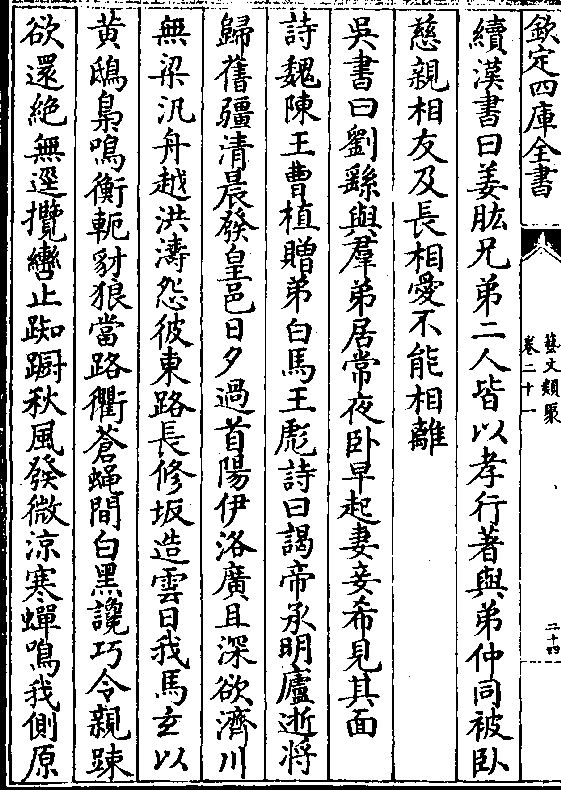 欽定四庫全書
藝文類聚
卷二十一
二十四
續漢書曰姜肱兄弟二人皆以孝行著與弟仲同被卧
慈親相友及長相愛不能相離
吳書曰劉繇與羣弟居常夜卧早起妻妾希見其面
詩魏陳王曹植贈弟白馬王彪詩曰謁帝承明廬逝將
歸舊疆清晨發皇邑日夕過首陽伊洛廣且深欲濟川
無梁汎舟越洪濤怨彼東路長修坂造雲日我馬玄以
黄鴟梟鳴衡軛豺狼當路衢蒼蝇間白黑讒巧令親踈
欲還絶無逕攬轡止踟蹰秋風發微涼寒蟬鳴我側原